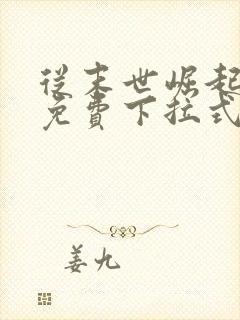 從末世崛起
免費下拉式
姜九